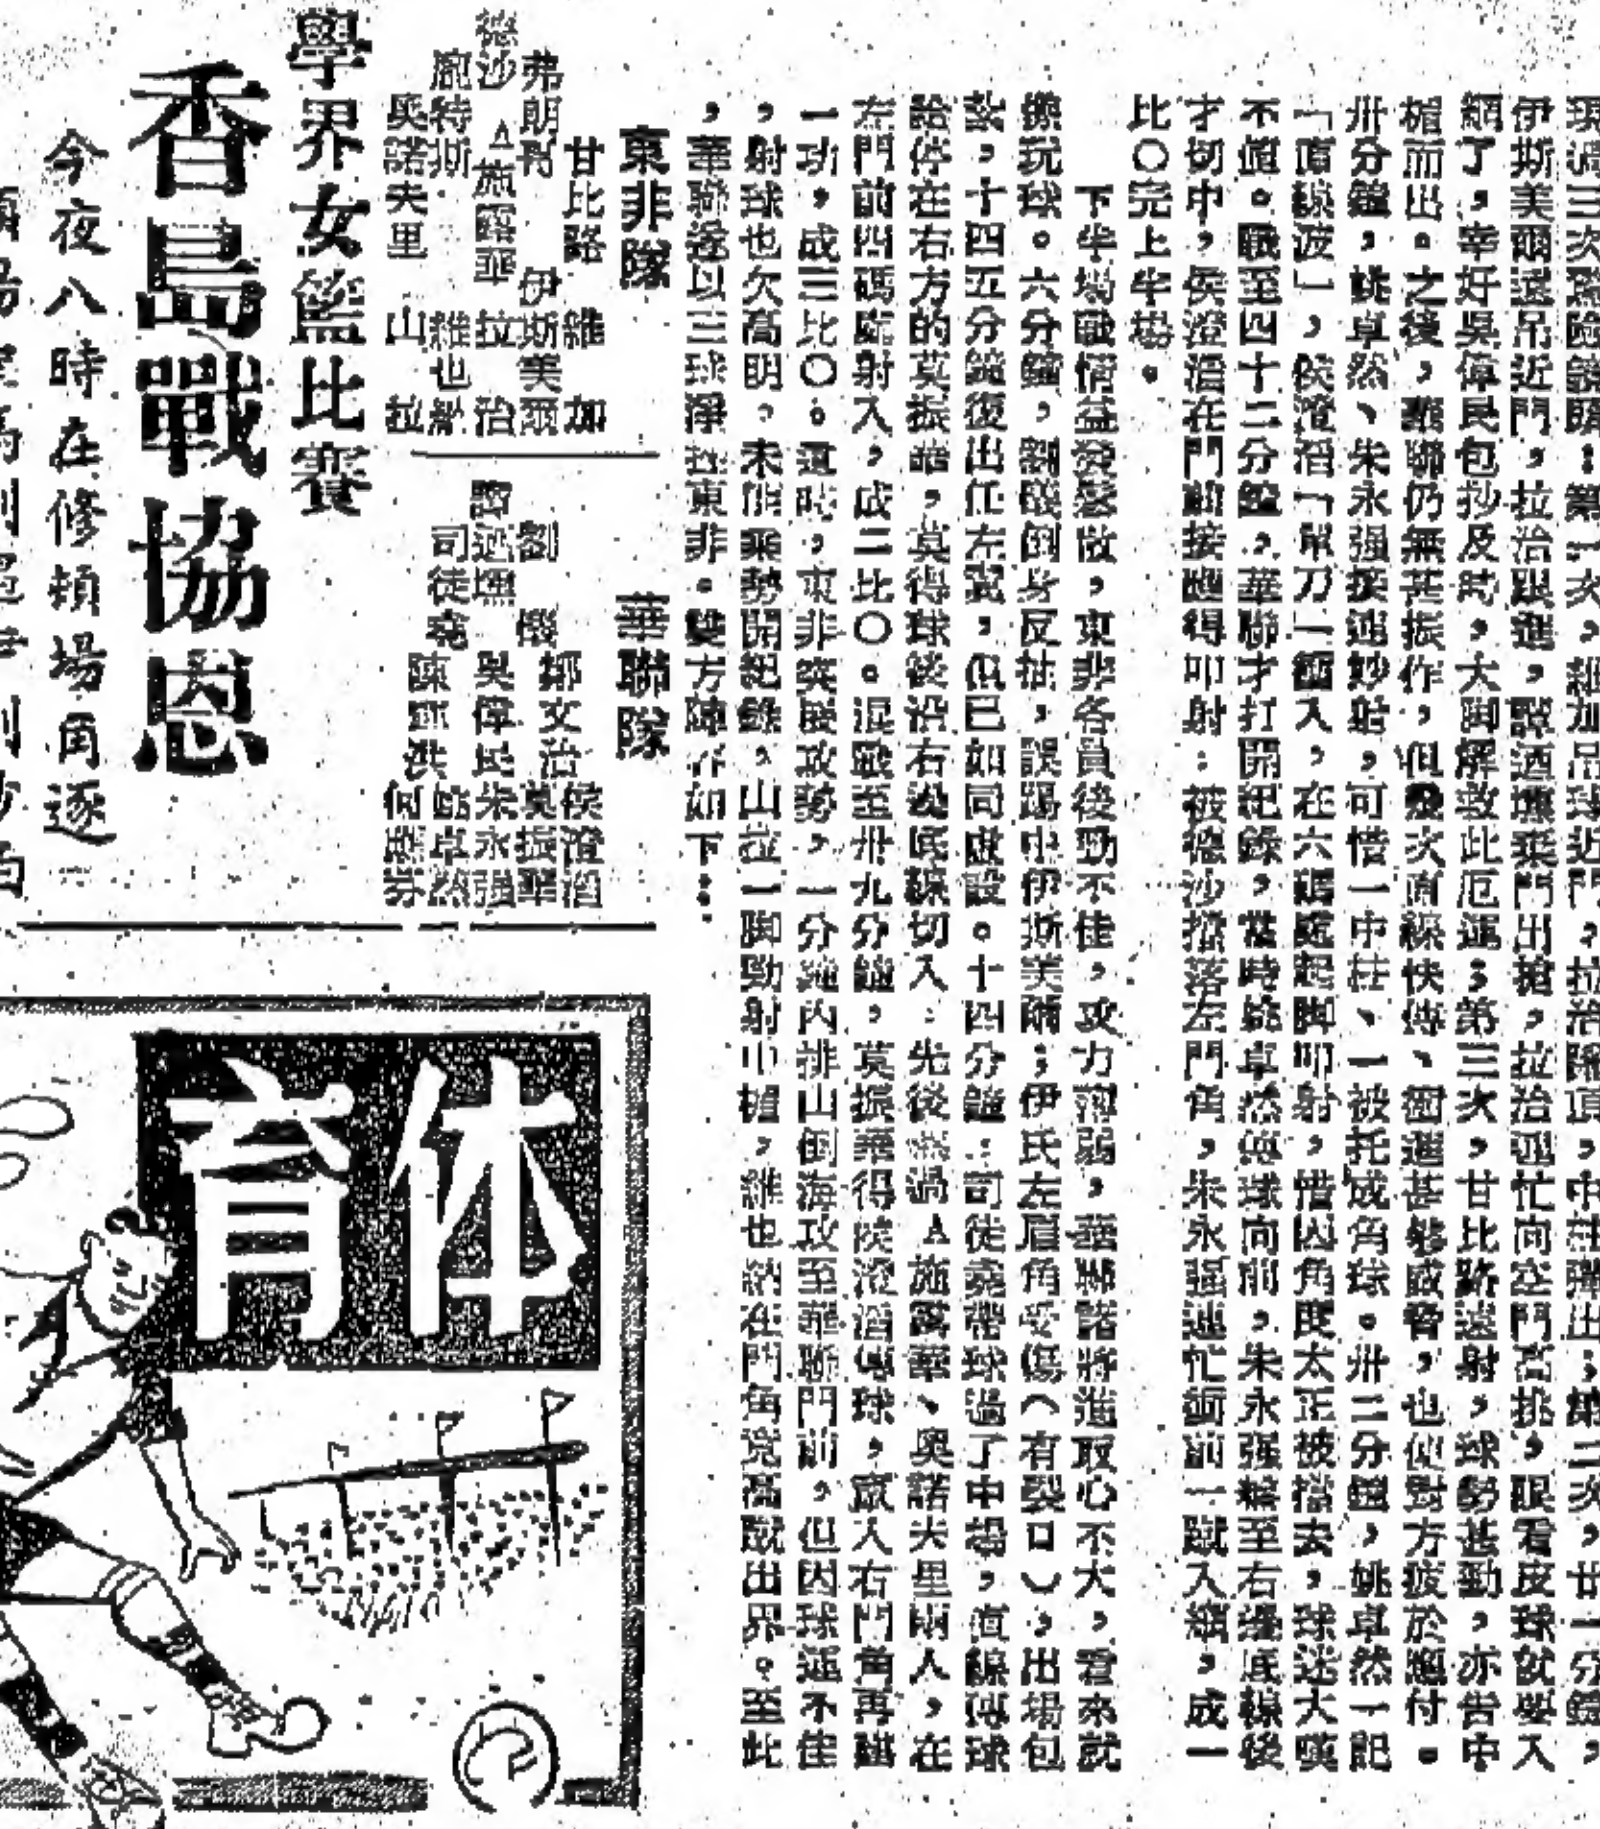 伊斯美爾遠吊近門，拉治跟進，出搶，拉治連忙向空門高挑，眼看皮球就要入
網了，幸好吳偉民包抄及時，大脚解救此厄運；第三次，甘比路遠射，球勢甚勁，亦告中
楣而出。之後，華聯仍無甚振作，但幾次直線快傳、也使對方疲於應付。
卅分鐘，姚卓然、朱永强接連妙射，可惜一中柱、一被托成角球。卅二分鐘，姚卓然一記
「直線波」，侯澄滔「單刀」衝入，在六碼處起脚叩射，惜因角度太正被擋去，球迷大嘆
不值。戰至四十二分鐘，華聯才打開紀錄，當時姚卓然傳球向前，朱永强盤至右邊底線後
才切中，侯澄滔在門前接應得叩射：被德沙擋落左門角，朱永强連忙衝前一蹴入網，成一
比〇完上半場。
下半場戰情益發鬆散，東非各員後勁不佳，攻力薄弱，華聯諸將進取心不大，看來就
像玩球。六分鐘，劉儀倒身反抽，誤踢中伊斯美爾；伊氏左眉角受傷（有裂口），出場包
紮，十四五分鐘復出任左翼，但已如同虛設。十四分鐘：司徒堯帶球過了中場，直線傳球
給停在右方的莫振華，莫得球後沿右邊底線切入，先後盤過A施露華、奧諾夫里兩人，在
左門前四碼處射入，成二比〇。混戰至卅九分鐘，莫振華得侯澄滔傳球，竄入右門角再建
一功，成三比〇。這時，東非突發攻勢，一分鐘內排山倒海攻至華聯門前，但因球運不佳
，射球也欠高明，未能乘勢開紀錄，山拉一脚勁射中楣，維也納在門角竟高蹴出界。至此
，華聯遂以三球淨挫東非。雙方陣容如下：
東非隊
甘比路　維　加
弗朗哥　伊斯美爾
德沙　A施露華　拉　治
龐特斯　維也納
奧諾夫里　山　拉
華聯隊
鄺文治　侯澄滔
劉　儀　莫振華
吳偉民　朱永强
司徒堯　姚卓然
陳輝洪　何應芬
學界女籃比賽
香島戰協恩
今夜八時在修頓場角逐
体育